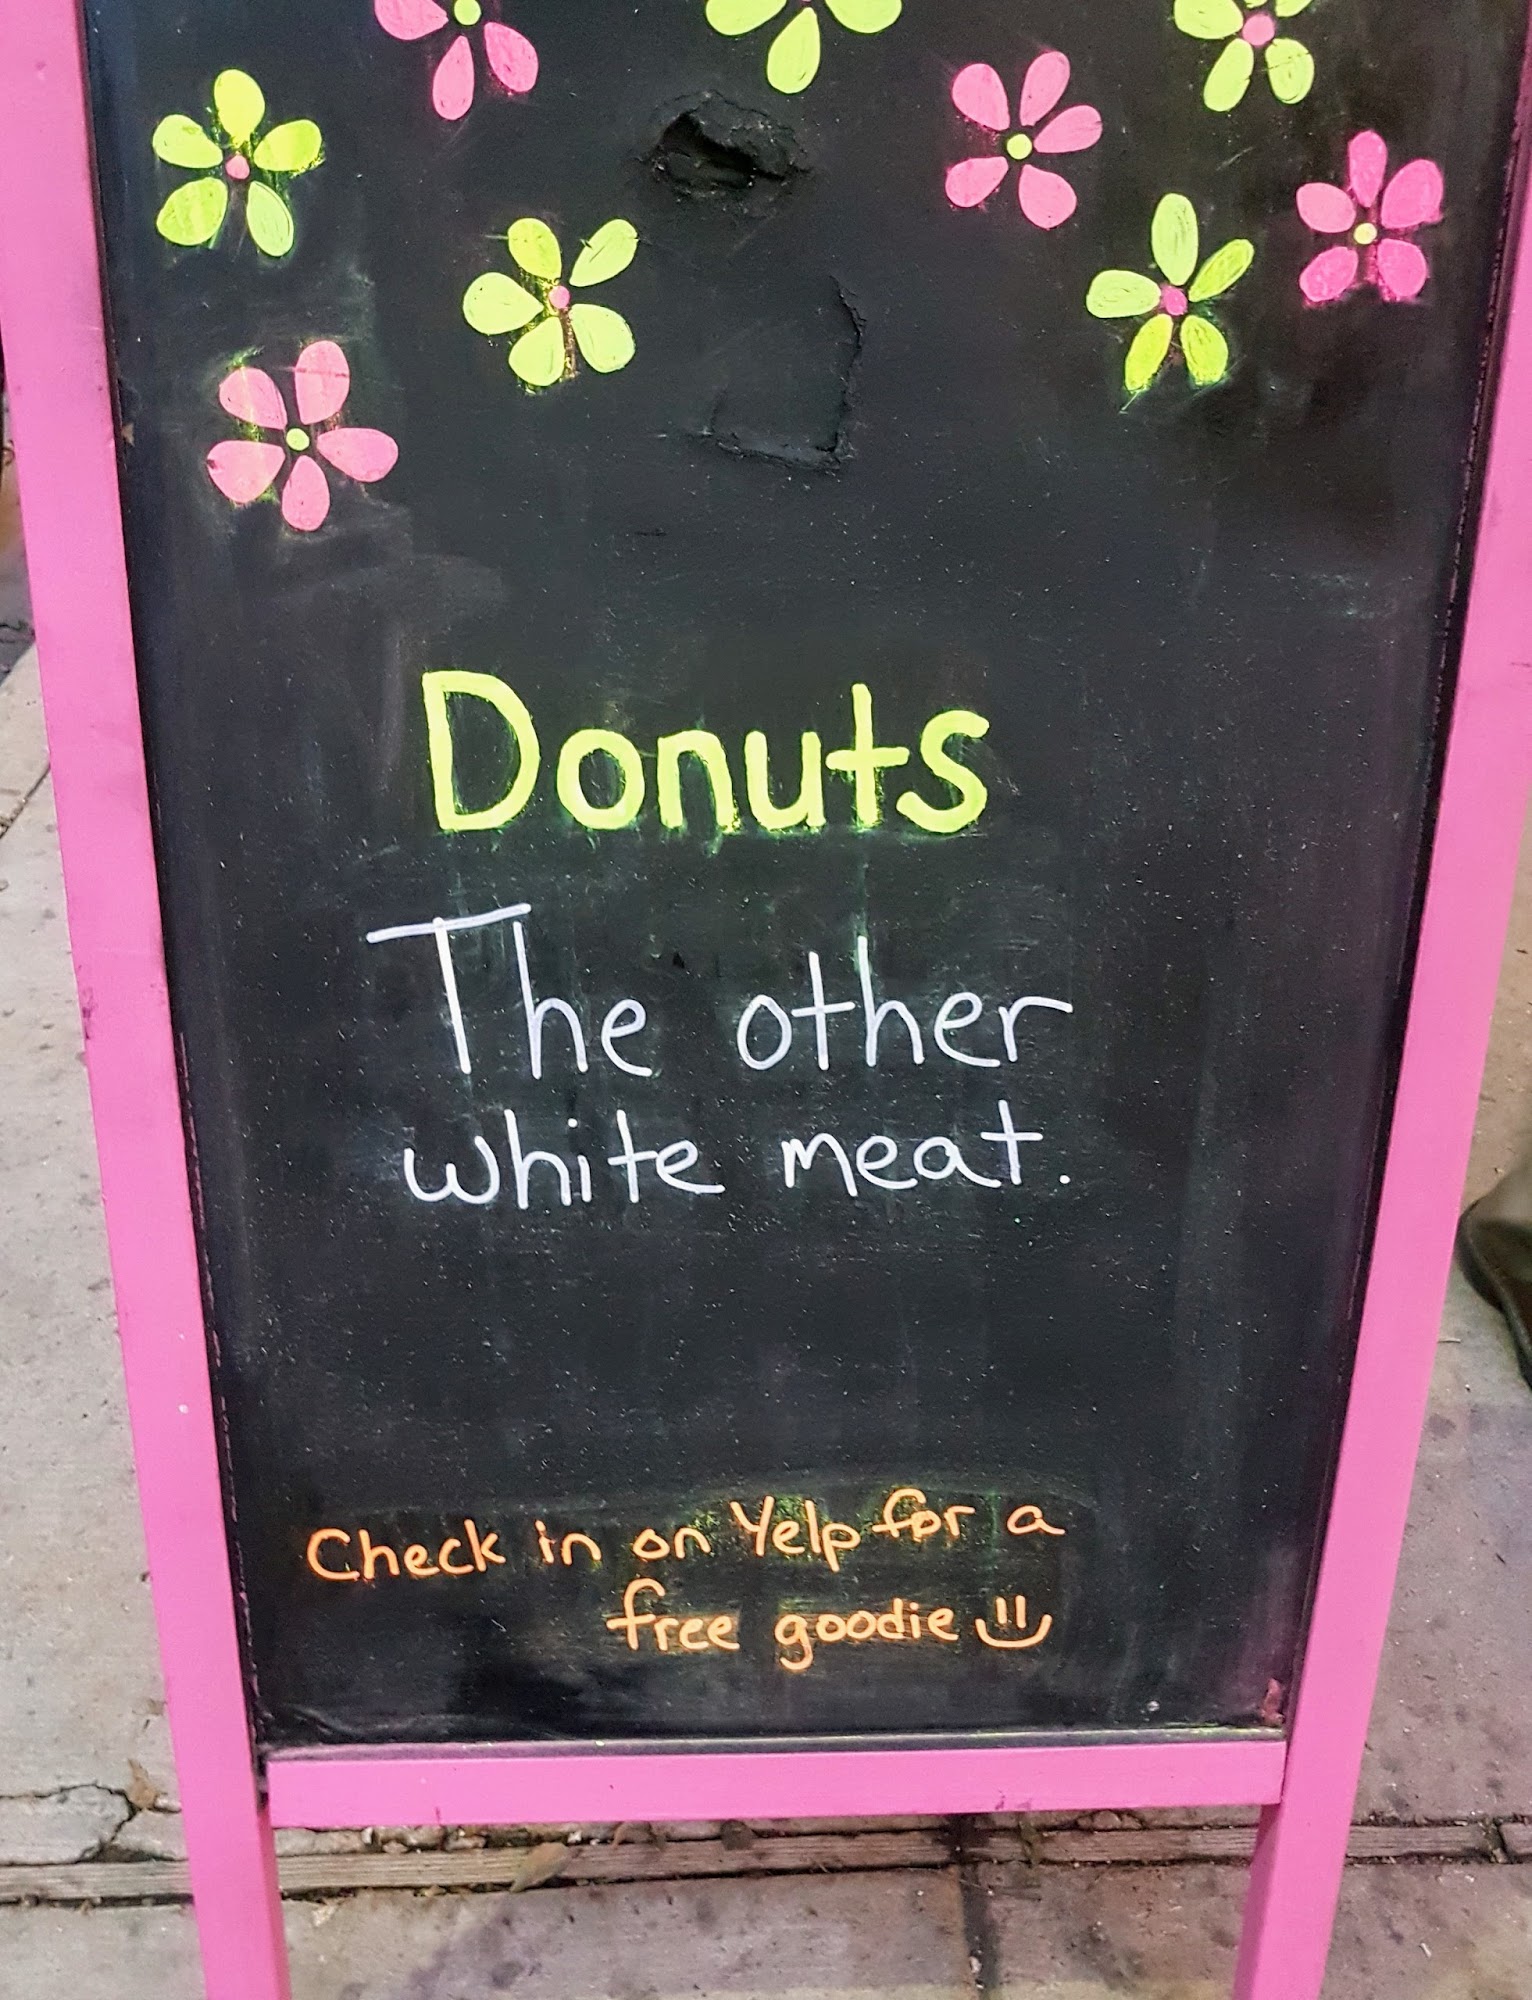 Donuts
The other
white meat.
Check in on Yelp for a
free goodie